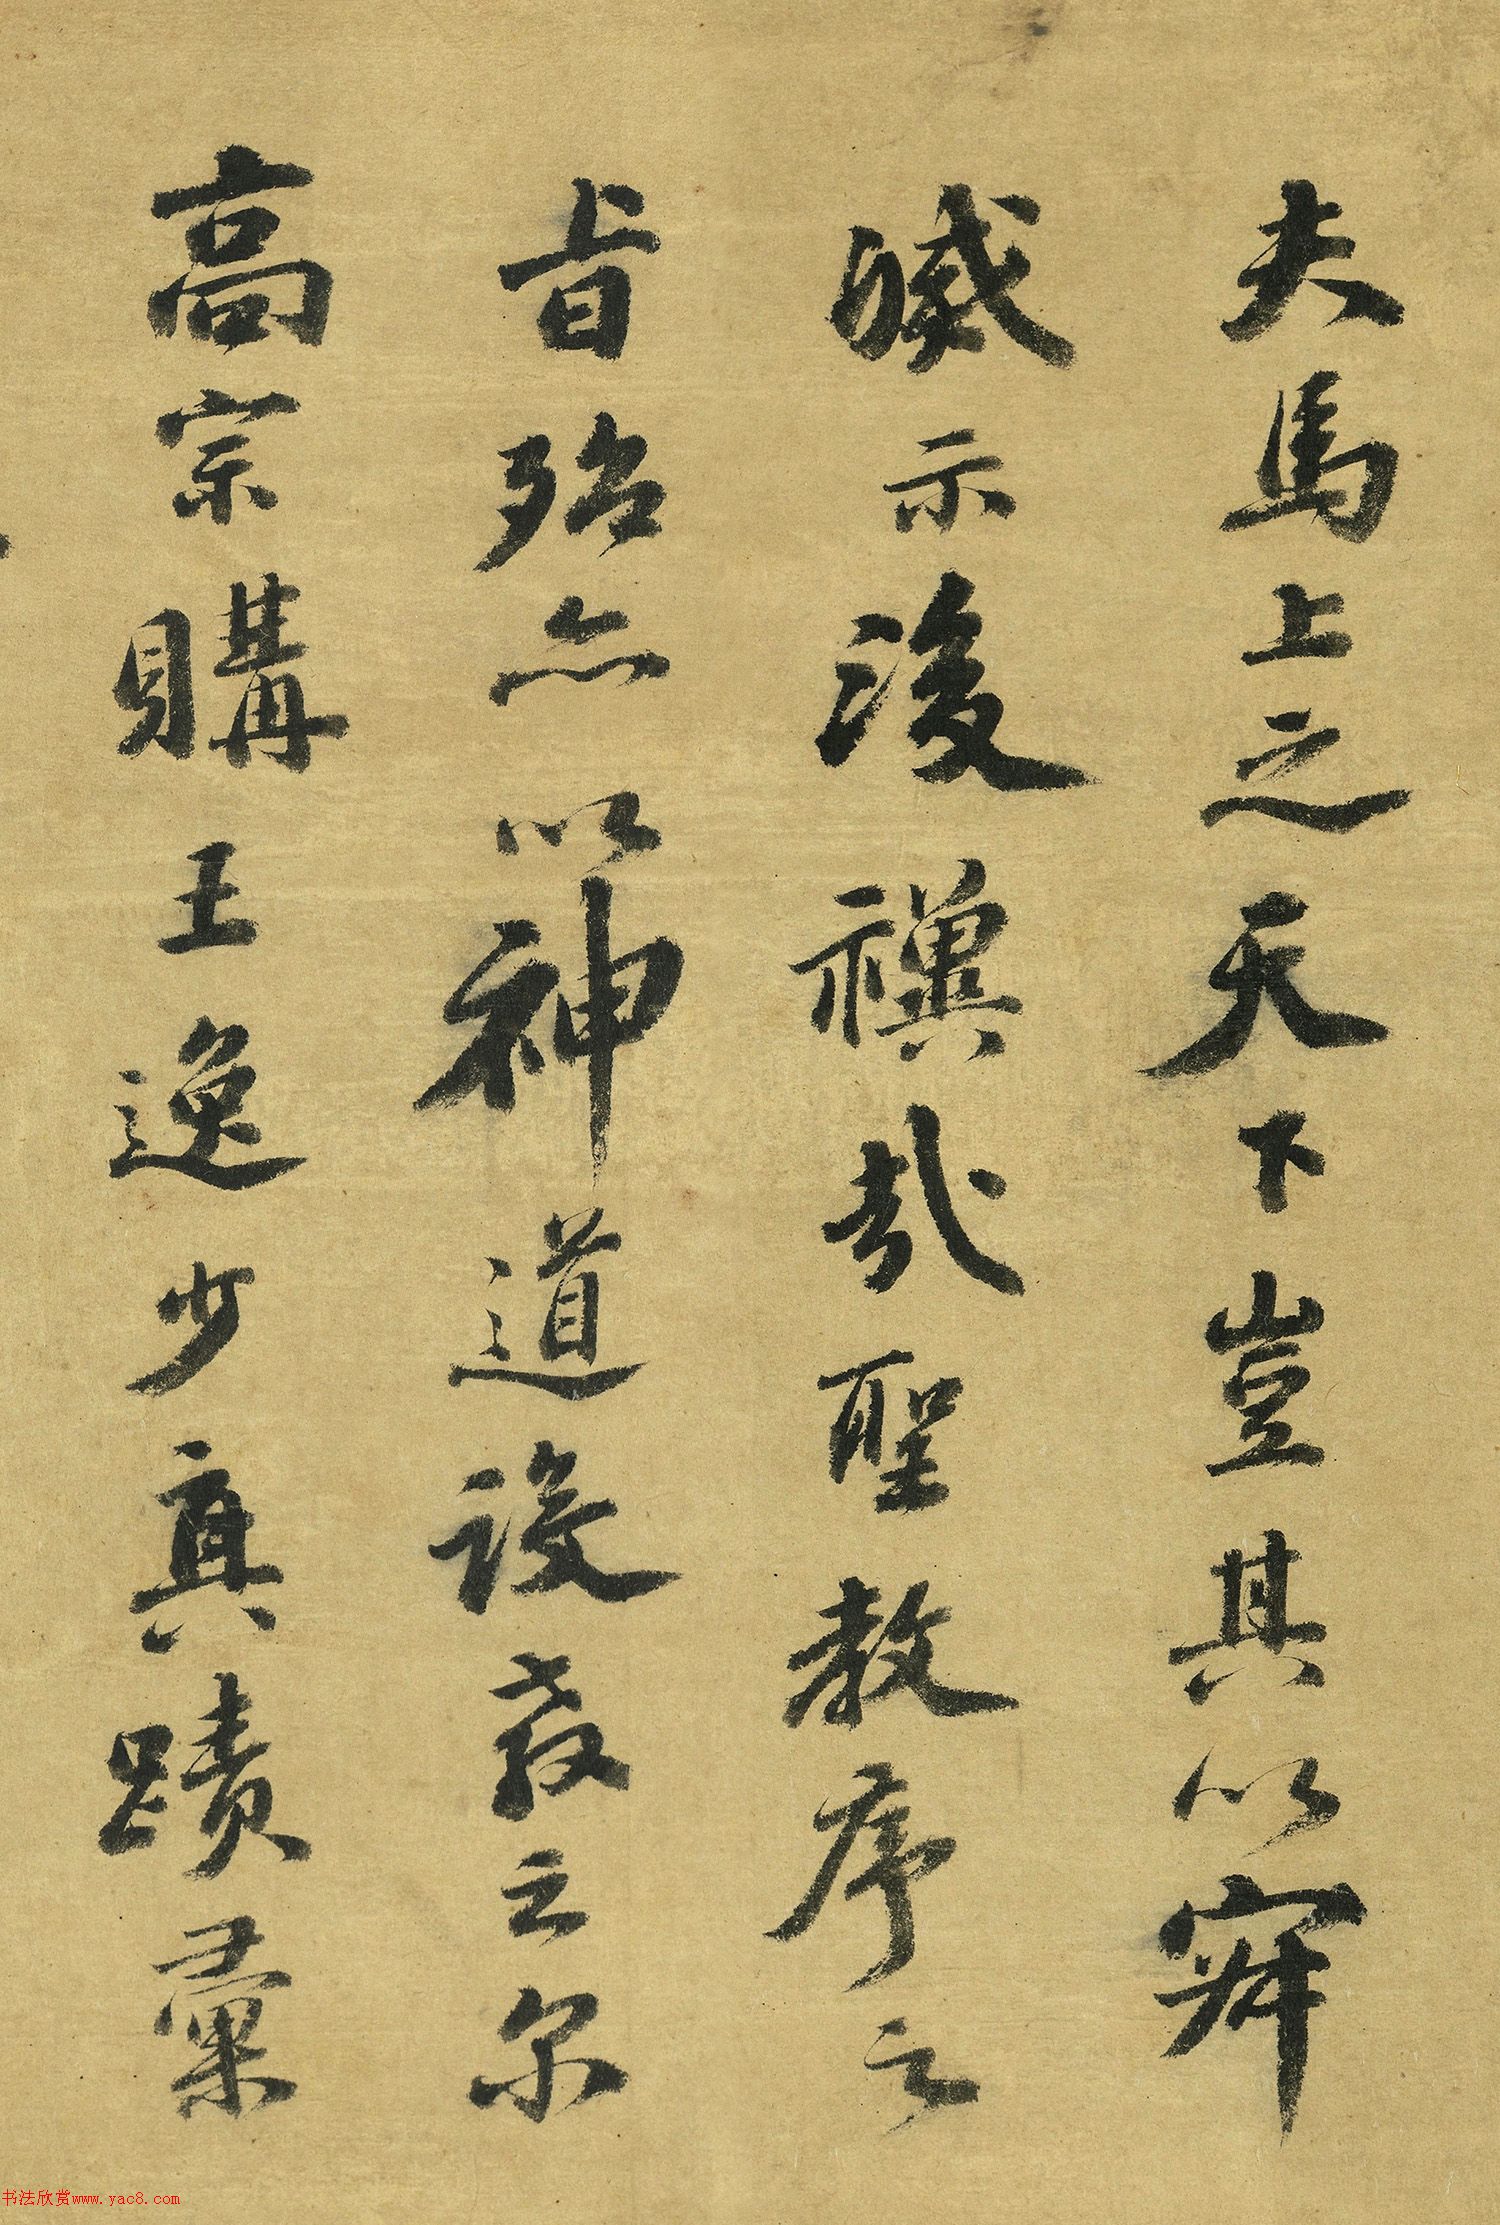 夫馬上之天下豈其以
示後禩哉聖教序之
旨殆亦以神道設教之尔
高宗購王逸少真蹟彙
书法欣赏www.yac8.com